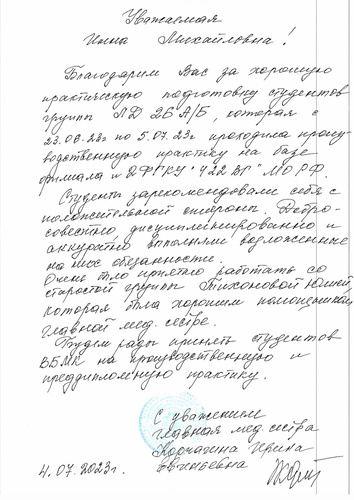 Уважаемая
Инна Михайловна!
Благодарим Вас за хорошую
практическую подготовку студентов
группы ЛД 2БА/Б, которая с
23.06.23г по 5.07.23г проходила произ-
водственную практику на базе
филиала №2 ФГКУ "422 ВГ" МО РФ.
Студенты зарекомендовали себя с
положительной стороны. Добро-
совестно, дисциплинированно и
аккуратно выполняли возложенные
на них обязанности.
Очень было приятно работать со
старостой группы Тихоновой Юлией,
которая была хорошим помощником
главной мед. сестре.
Будем рады принять студентов
ВБМК на производственную и
преддипломную практику.
С уважением
главная мед. сестра
Корчагина Ирина
Евгеньевна
4.07.2023г.